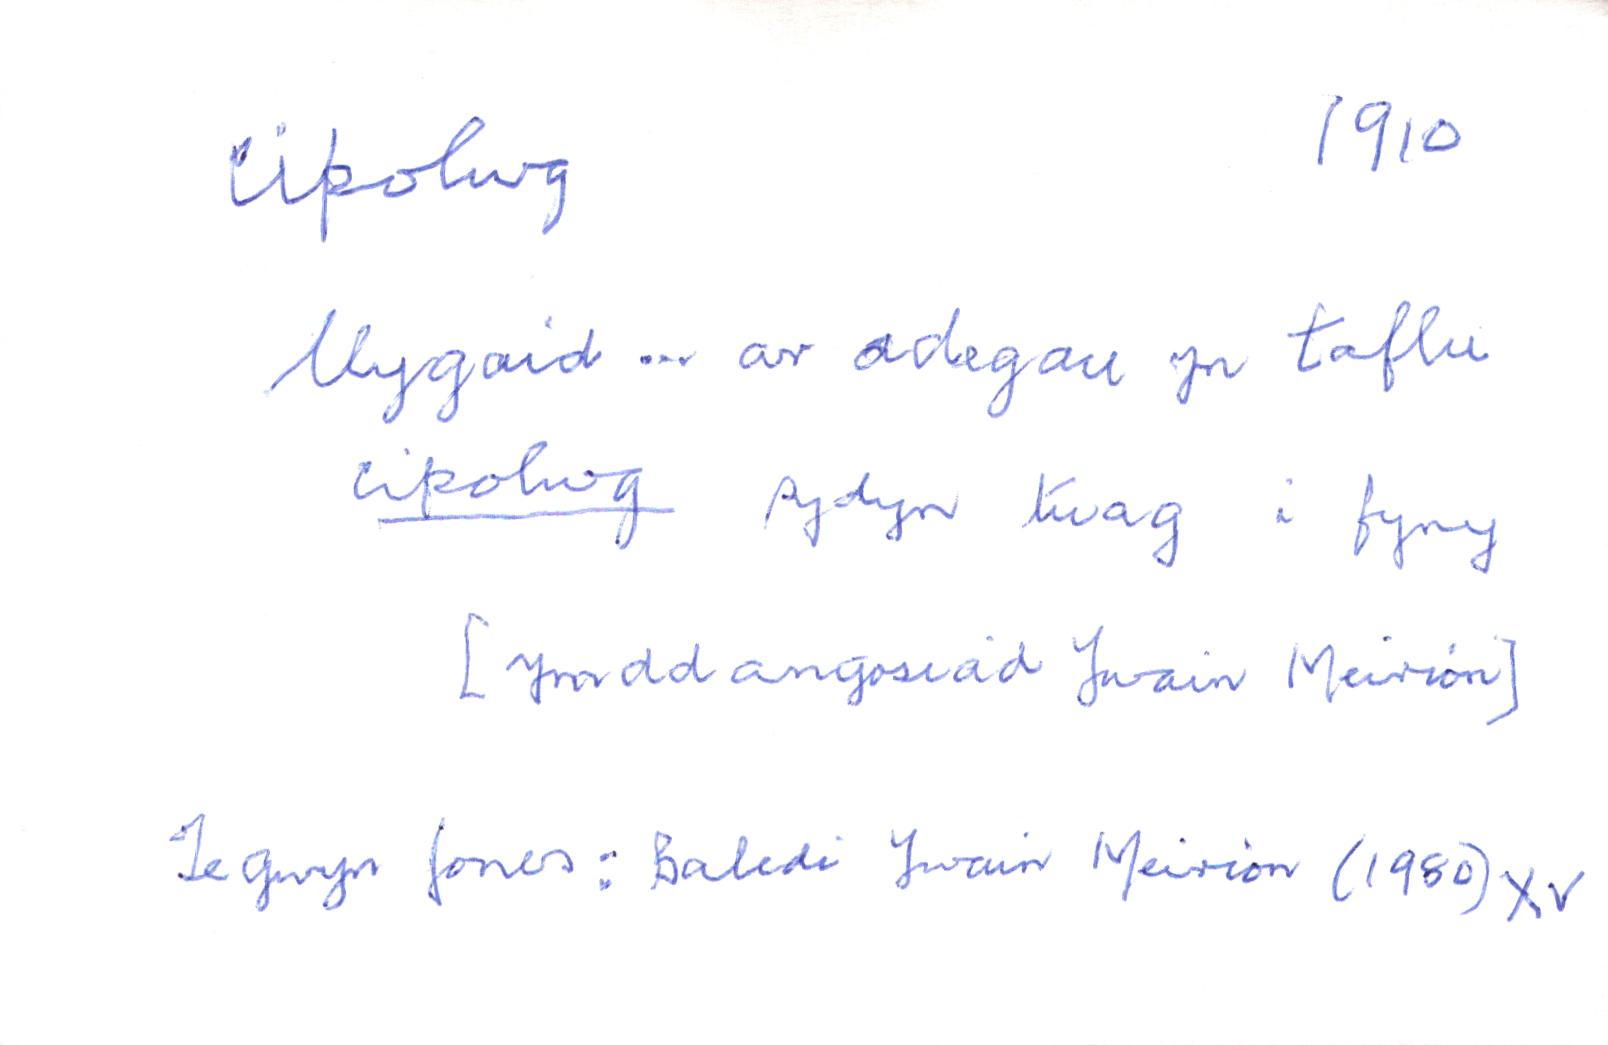 cipolwg 1910
llygaid ... ar adegau yn taflu
cipolwg sydyn tuag i fyny
[ymddangosiad Ywain Meirion]
Tegwyn Jones : Baledi Ywain Meirion (1980) XV